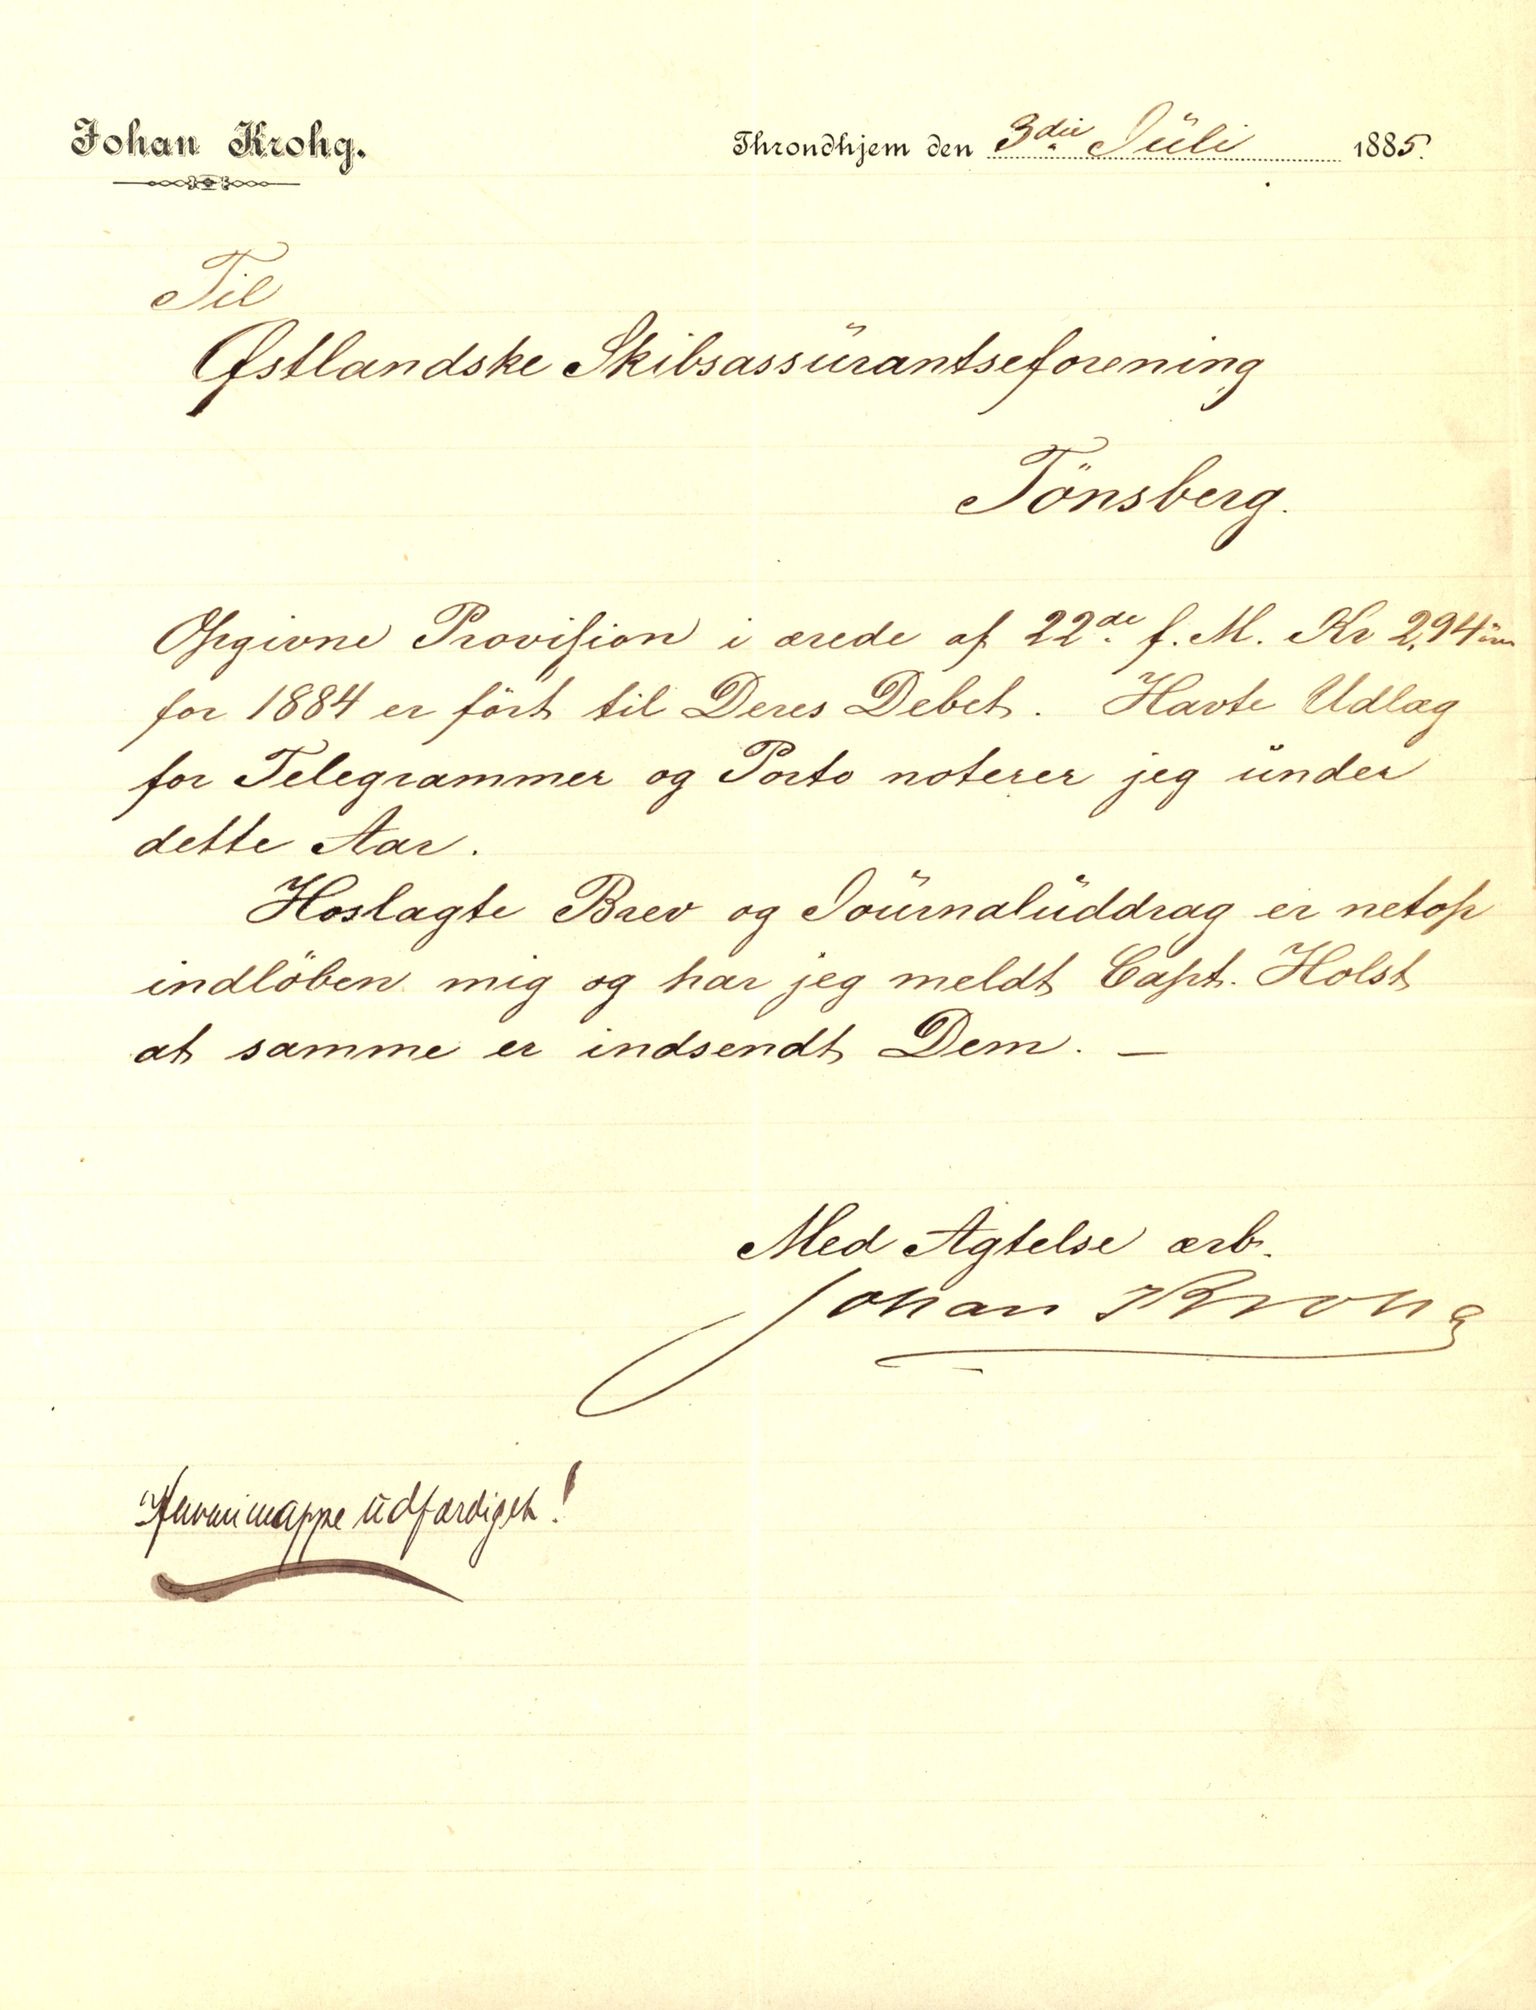 Johan Krohg.
Throndhjem den 3die Jüli 1885.
Til
Østlandske Skibsassürantseforening
Tönsberg.
Opgivne Provision i ærede af 22de f. M. Kr 2,94
for 1884 er fört til Deres Debet. Havte Udlæg
for Telegrammer og Porto noterer jeg ünder
dette Aar.
Hoslagte Brev og Joürnalüddrag er netop
indlöben mig og har jeg meldt Capt. Holst
at samme er indsendt Dem. —
Med Agtelse ærb.
Johan Krohg
Havarimappe üdfærdiget!